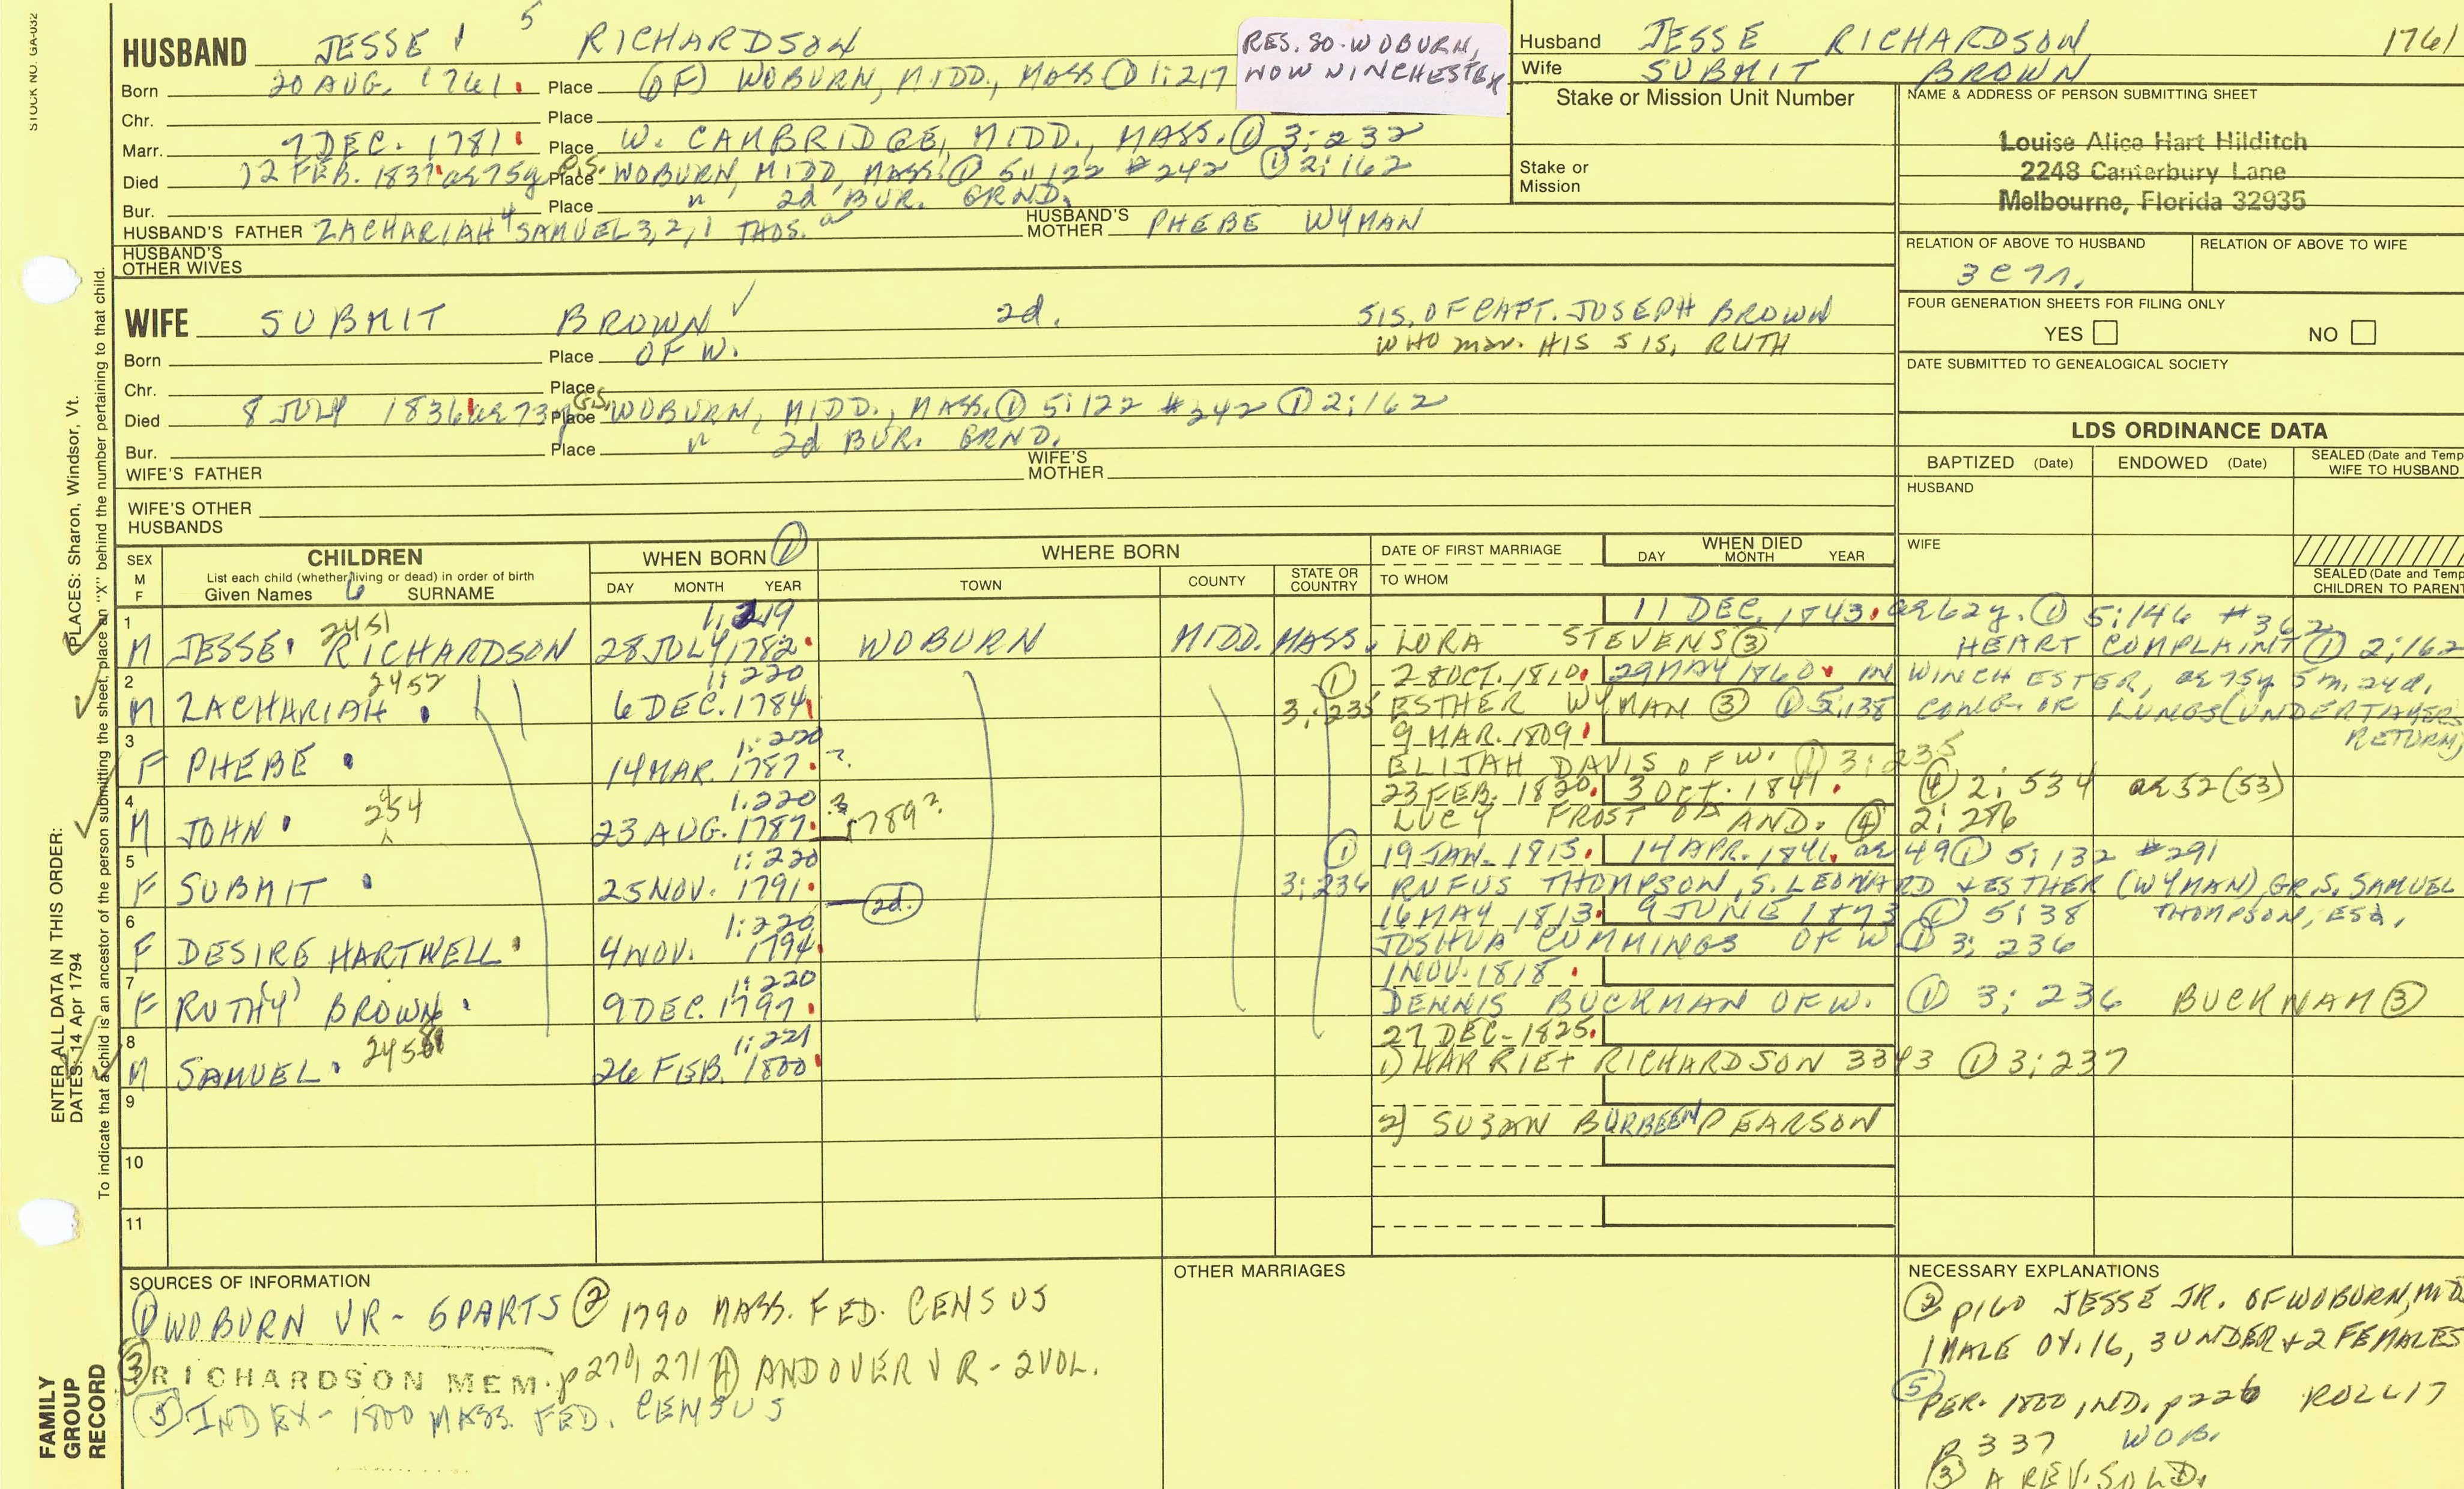 STOCK NO. GA-032
HUSBAND JESSE 5 RICHARDSON
RES. SO. WOBURN,
NOW WINCHESTER
Born 20 AUG. 1761. Place (OF) WOBURN, MIDD., MASS ① 1:217
Chr. Place
Marr. 7 DEC. 1781 Place W. CAMBRIDGE, MIDD., MASS. ① 3:232
Died 12 FEB. 1837 ae 75y G.S. Place WOBURN, MIDD, MASS. ① 5:122 #242 ① 2:162
Bur. Place " 2d BUR. GRND.
HUSBAND'S FATHER ZACHARIAH 4 SAMUEL 3, 2, 1 THOS.
HUSBAND'S MOTHER PHEBE WYMAN
HUSBAND'S OTHER WIVES
WIFE SUBMIT BROWN ✓ 2d. SIS. OF CAPT. JOSEPH BROWN
WHO mar. HIS SIS, RUTH
Born Place OF W.
Chr. Place
Died 8 JULY 1836 ae 73y G.S. Place WOBURN, MIDD., MASS. ① 5:122 #242 ① 2:162
Bur. Place " 2d BUR. GRND.
WIFE'S FATHER WIFE'S MOTHER
WIFE'S OTHER HUSBANDS
Husband JESSE RICHARDSON 1761
Wife SUBMIT BROWN
Stake or Mission Unit Number
Stake or Mission
NAME & ADDRESS OF PERSON SUBMITTING SHEET
Louise Alice Hart Hilditch
2248 Canterbury Lane
Melbourne, Florida 32935
RELATION OF ABOVE TO HUSBAND RELATION OF ABOVE TO WIFE
FOUR GENERATION SHEETS FOR FILING ONLY
YES NO
DATE SUBMITTED TO GENEALOGICAL SOCIETY
LDS ORDINANCE DATA
BAPTIZED (Date) ENDOWED (Date) SEALED (Date and Temp
WIFE TO HUSBAND
HUSBAND
WIFE
SEALED (Date and Temp
CHILDREN TO PARENT
SEX M F
CHILDREN
List each child (whether living or dead) in order of birth
Given Names 6 SURNAME
WHEN BORN ①
DAY MONTH YEAR
WHERE BORN
TOWN COUNTY STATE OR COUNTRY
DATE OF FIRST MARRIAGE
TO WHOM
WHEN DIED
DAY MONTH YEAR
1:219 11 DEC. 1843. ae 62y. ① 5:146 #362
1 M JESSE 2451 RICHARDSON 28 JULY 1782 WOBURN MIDD. MASS. LORA STEVENS ③ HEART COMPLAINT ① 2:162
1:220 ① 28 OCT. 1810. 29 MAY 1860 IN WINCHESTER, ae 75y 5m. 24d.
2 M ZACHARIAH 2452 6 DEC. 1784 3:235 ESTHER WYMAN ③ ① 5:138 CONG. OF LUNGS (UNDERTAKERS RETURN)
1:220 9 MAR. 1809
3 F PHEBE 14 MAR. 1787. ? ELIJAH DAVIS OF W. ① 3:235
1:220 ? 23 FEB. 1820. 3 OCT. 1841. ④ 2:534 ae 52 (53)
4 M JOHN 23 AUG. 1787. 1789? LUCY FROST OF AND. ④ 2:286
1:220 ① 19 JAN. 1815. 14 APR. 1841. ae 49 ① 5:132 #291
5 F SUBMIT 25 NOV. 1791. 2d. 3:236 RUFUS THOMPSON, S. LEONARD & ESTHER (WYMAN), GR. S. SAMUEL THOMPSON, ESQ.
1:220 16 MAY 1813. 9 JUNE 1873 ① 5:38
6 F DESIRE HARTWELL 4 NOV. 1794 JOSHUA CUMMINGS OF W ① 3:236
1:220 1 NOV. 1818.
7 F RUTH(Y) BROWN 9 DEC. 1797. DENNIS BUCKMAN OF W. ① 3:236 BUCKNAM ③
1:221 27 DEC. 1825.
8 M SAMUEL 26 FEB. 1800 1) HARRIET RICHARDSON 3393 ① 3:237
9 2) SUSAN BURBEEN PEARSON
10
11
SOURCES OF INFORMATION
① WOBURN VR - 5 PARTS ② 1790 MASS. FED. CENSUS
③ RICHARDSON MEM. p270, 271 ④ ANDOVER VR - 2 VOL.
⑤ INDEX - 1800 MASS. FED. CENSUS
OTHER MARRIAGES
NECESSARY EXPLANATIONS
② p160 JESSE JR. OF WOBURN, MID
1 MALE OV. 16, 3 UNDER + 2 FEMALES
⑤ PER. 1800 IND. p226 ROLL 17
P 337 WOB.
③ A REV. SOLD.
ENTER ALL DATA IN THIS ORDER:
DATES: 14 Apr 1794
PLACES: Sharon, Windsor, Vt.
To indicate that a child is an ancestor of the person submitting the sheet, place an "X" behind the number pertaining to that child.
FAMILY
GROUP
RECORD